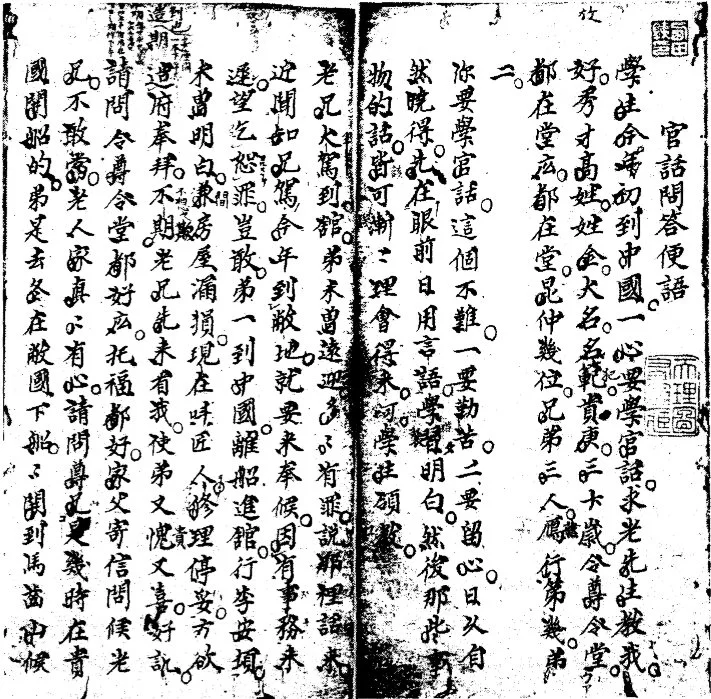 官話問答便語
學生今年初到中國一心要學官話求老先生教我
好秀才高姓姓金大名名範貴庚三十歲令尊令堂
都在堂広都在堂昆仲幾位兄弟三人鴈行第幾第
二
你要學官話這個不難一要勤苦二要留心日久自
然曉得先在眼前日用言語學習明白然後那些事
物的話皆可漸〻理會得來阿學生領教
老兄大駕到舘弟未曽遠迎多〻有罪說那裡話來
近聞知兄駕今年到敝地就要来奉候因有事務来
遲望乞恕罪豈敢弟一到中國離船進舘行李安頓
未曽明白兼房屋漏損現在呌匠人修理停妥方欲
造府奉拜不期老兄先来看我使弟又愧又喜好說
請問令尊令堂都好広托福都好家父寄信問候老
兄不敢當老人家真〻有心請問尊兄是幾時在貴
國開船的弟是去冬在敝國下船〻開到馬齒山候